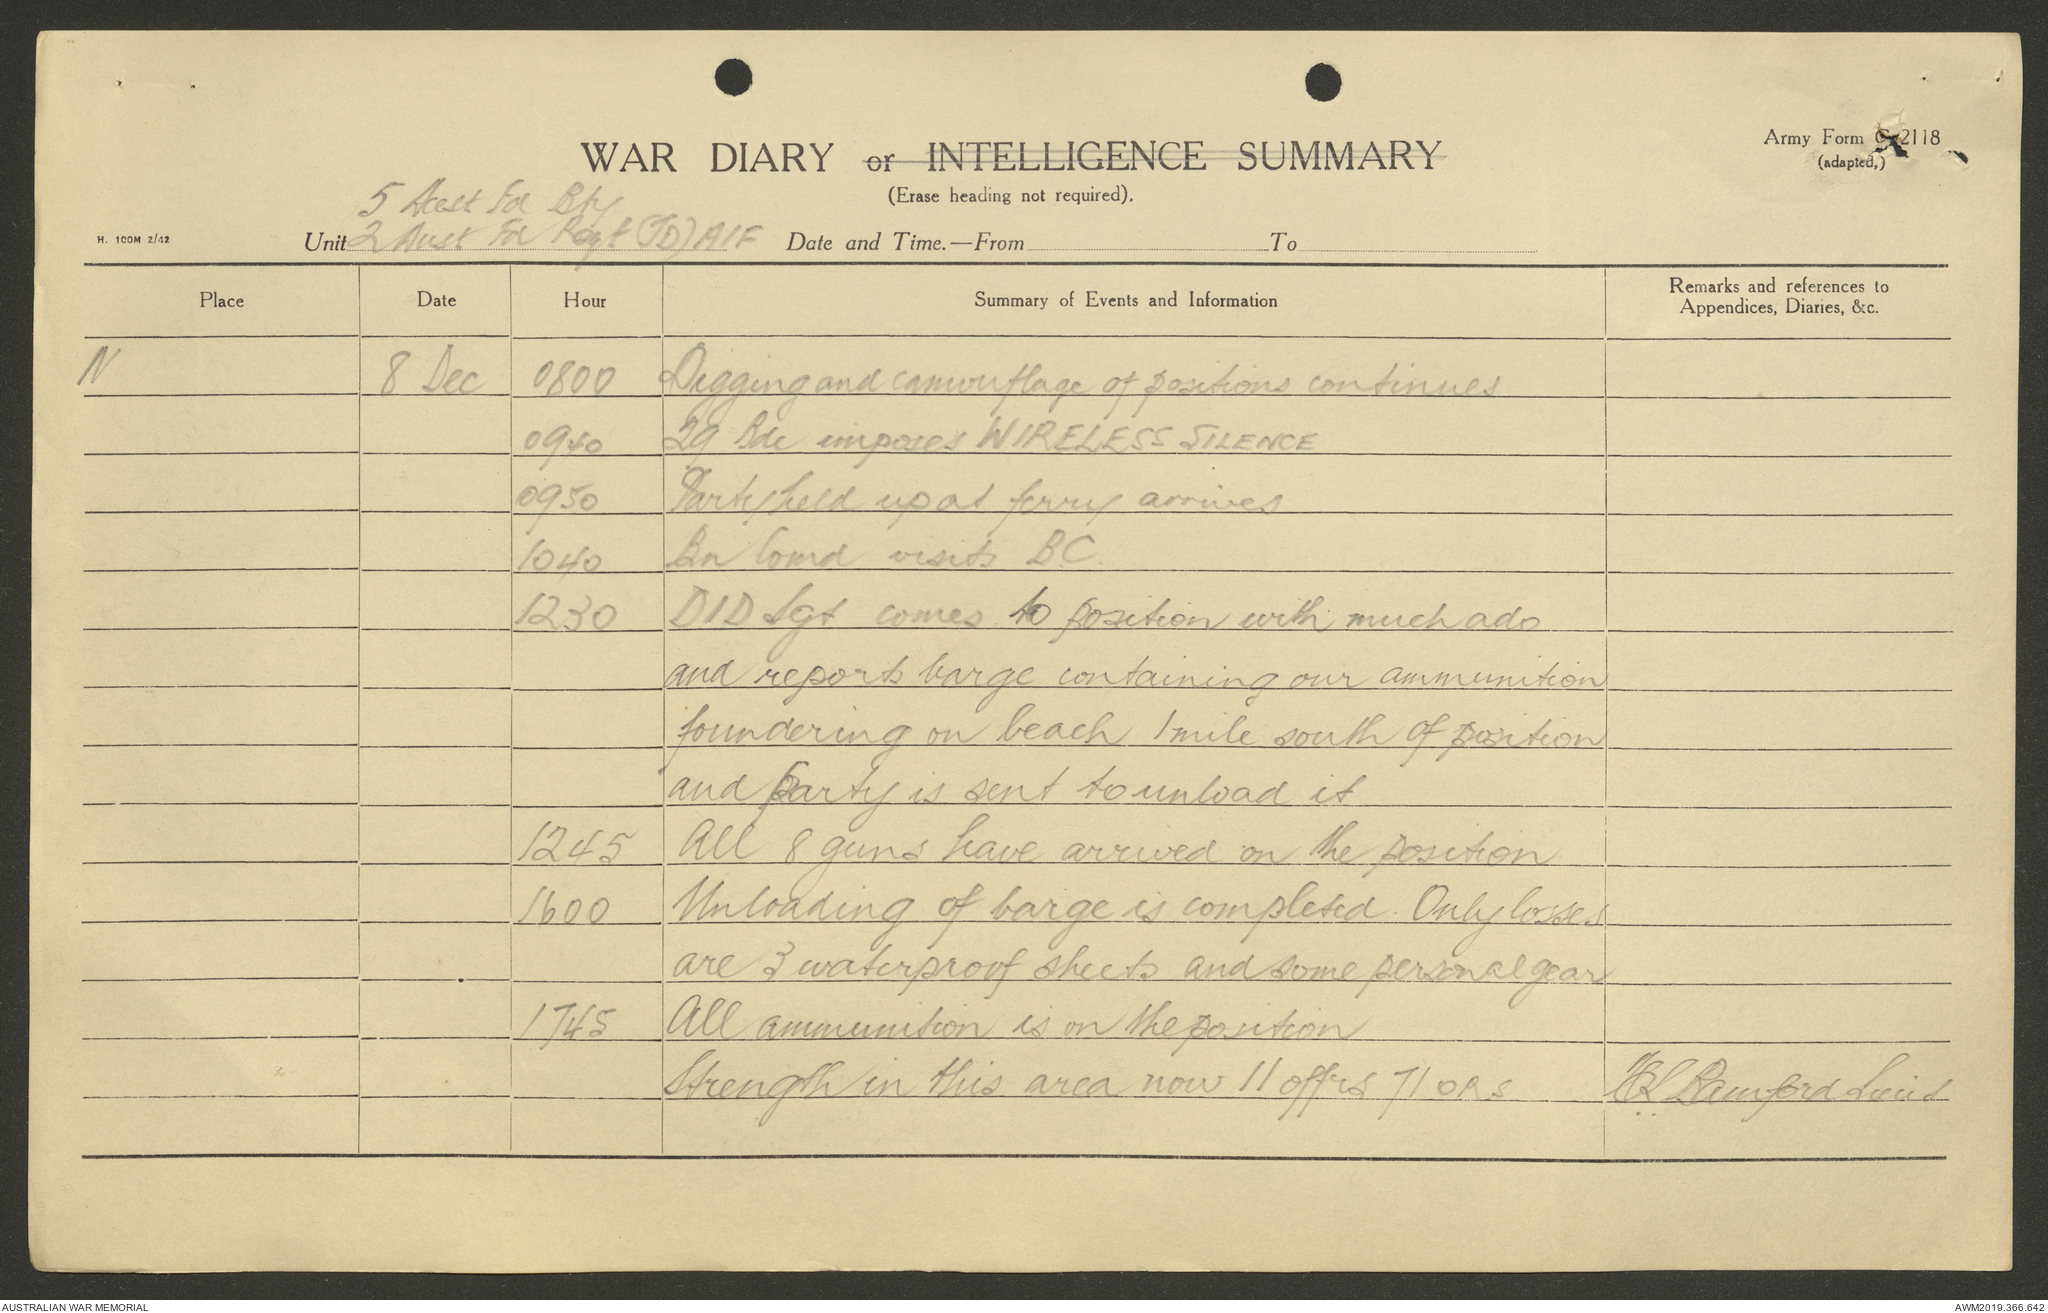 WAR DIARY or INTELLIGENCE SUMMARY
(Erase heading not required).
Army Form C. 2118
(adapted.)
H. 1COM 2/42
5 Aust Fd Bty
Unit 2 Aust Fd Regt (JD) AIF Date and Time.—From To
Place Date Hour Summary of Events and Information Remarks and references to
Appendices, Diaries, &c.
N 8 Dec 0800 Digging and camouflage of positions continues
0940 29 Bde imposes WIRELESS SILENCE
0950 Party held up at ferry arrives
1040 Bn Comd visits BC.
1230 DID Sgt comes to position with much ado
and reports barge containing our ammunition
foundering on beach 1 mile south of position
and party is sent to unload it
1245 All 8 guns have arrived on the position
1600 Unloading of barge is completed. Only losses
are 3 waterproof sheets and some personal gear
1745 All ammunition is on the position
Strength in this area now 11 offrs 71 ORs Bamford Lieut
AUSTRALIAN WAR MEMORIAL AWM2019.366.642